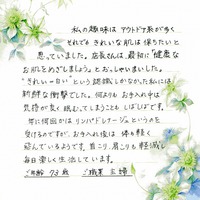 私の趣味は アウトドア系が多く
それでも きれいな肌は保ちたいと
思っていました。店長さんは、最初に「健康な
お肌をめざしましょう。」とおっしゃいました。
"きれい=白い"という認識しかなかった私には
新鮮な衝撃でした。何よりも お手入れ中は
気持が良く眠むってしまうことも しばしばです。
年に何回かは リンパドレナージュというのを
受けるのですが、お手入れ後は 体も軽く
弾んでいるようです。首こり、肩こりも軽減し
毎日楽しく生活しています。
ご年齢 73歳 ご職業 主婦